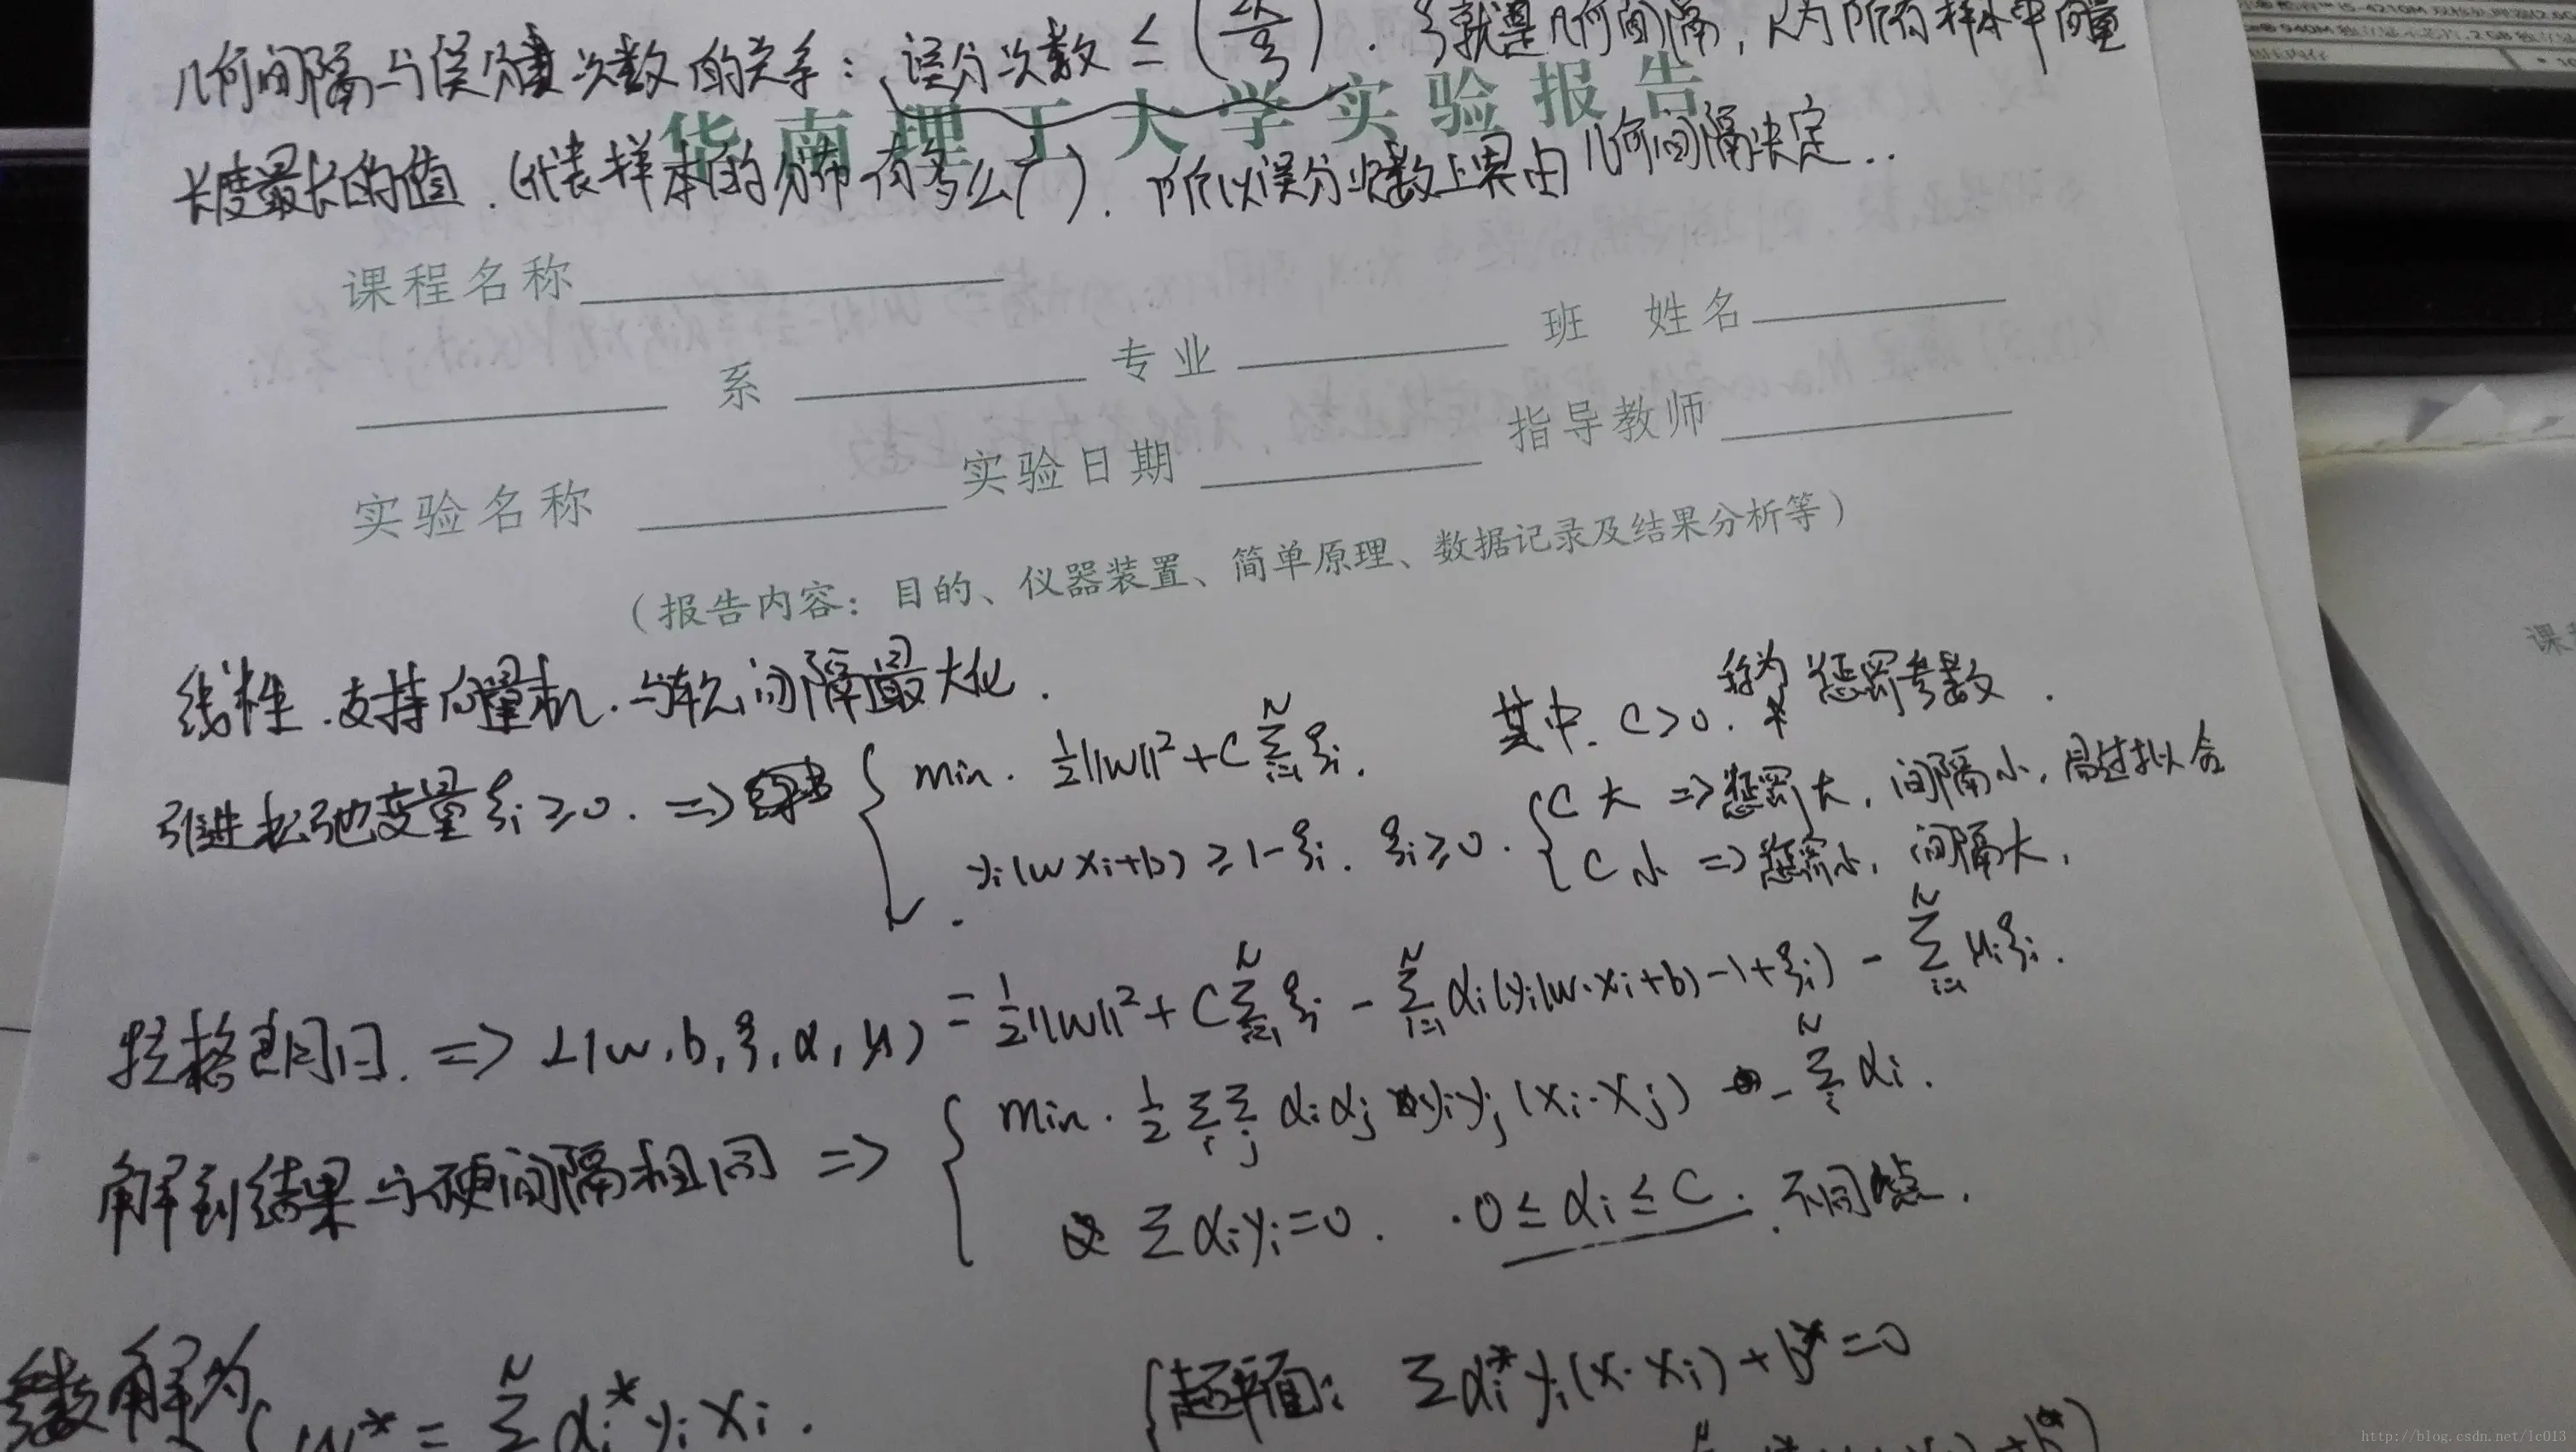 几何间隔与误分类次数的关系:误分次数 ≤ (2R/δ). δ就是几何间隔,R为所有样本中向量
华南理工大学实验报告
长度最长的值.(代表样本的分布有多么广).所以误分次数上界由几何间隔决定..
课程名称
系 专业 班 姓名
实验名称 实验日期 指导教师
(报告内容:目的、仪器装置、简单原理、数据记录及结果分析等)
线性.支持向量机.与软间隔最大化.
引进松弛变量 ξi ≥ 0. => { min. 1/2||w||² + C Σ(i=1..N) ξi. 其中. C>0. 称为惩罚参数.
yi(w xi+b) ≥ 1-ξi. ξi ≥ 0. { C 大 => 惩罚大,间隔小,易过拟合
C 小 => 惩罚小,间隔大,
拉格朗日. => L(w,b,ξ,α,μ) = 1/2||w||² + C Σ(i=1..N) ξi - Σ(i=1..N) αi(yi(w·xi+b)-1+ξi) - Σ(i=1..N) μiξi.
解到结果与硬间隔相同 => { min. 1/2 Σi Σj αi αj yi yj (xi·xj) - Σ(i..N) αi.
Σ αi yi = 0. · 0 ≤ αi ≤ C. 不同点.
解为 { w* = Σ(N) αi* yi xi. { 超平面: Σ αi* yi(x·xi) + b* = 0
+ b*)
http://blog.csdn.net/lc013